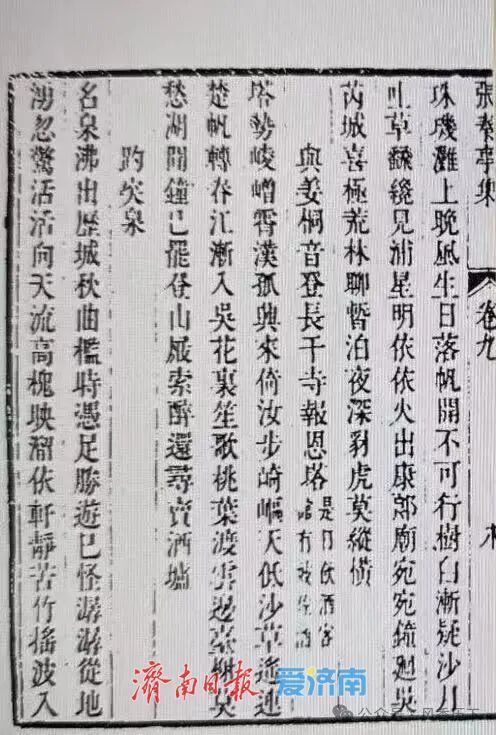 張秦亭集 卷九
珠磯灘上晚風生日落帆開不可行樹白漸疑沙月
吐草綠纔見浦星明依依火出康郎廟宛宛迴吳
芮城喜極荒林聊暫泊夜深豹虎莫縱橫
與姜桐音登長干寺報恩塔 是日飲酒家
塔勢崚嶒霄漢孤興來倚汝步崎嶇天低沙草遙連
楚帆轉春江漸入吳花裏笙歌桃葉渡雲邊臺榭莫
愁湖聞鐘已罷登山屐索醉還尋賣酒壚
趵突泉
名泉沸出歷城秋曲檻時憑足勝遊已怪潺潺從地
湧忽驚活活向天流高槐映溜依軒靜苦竹搖波入
濟南日报 爱济南
公众号